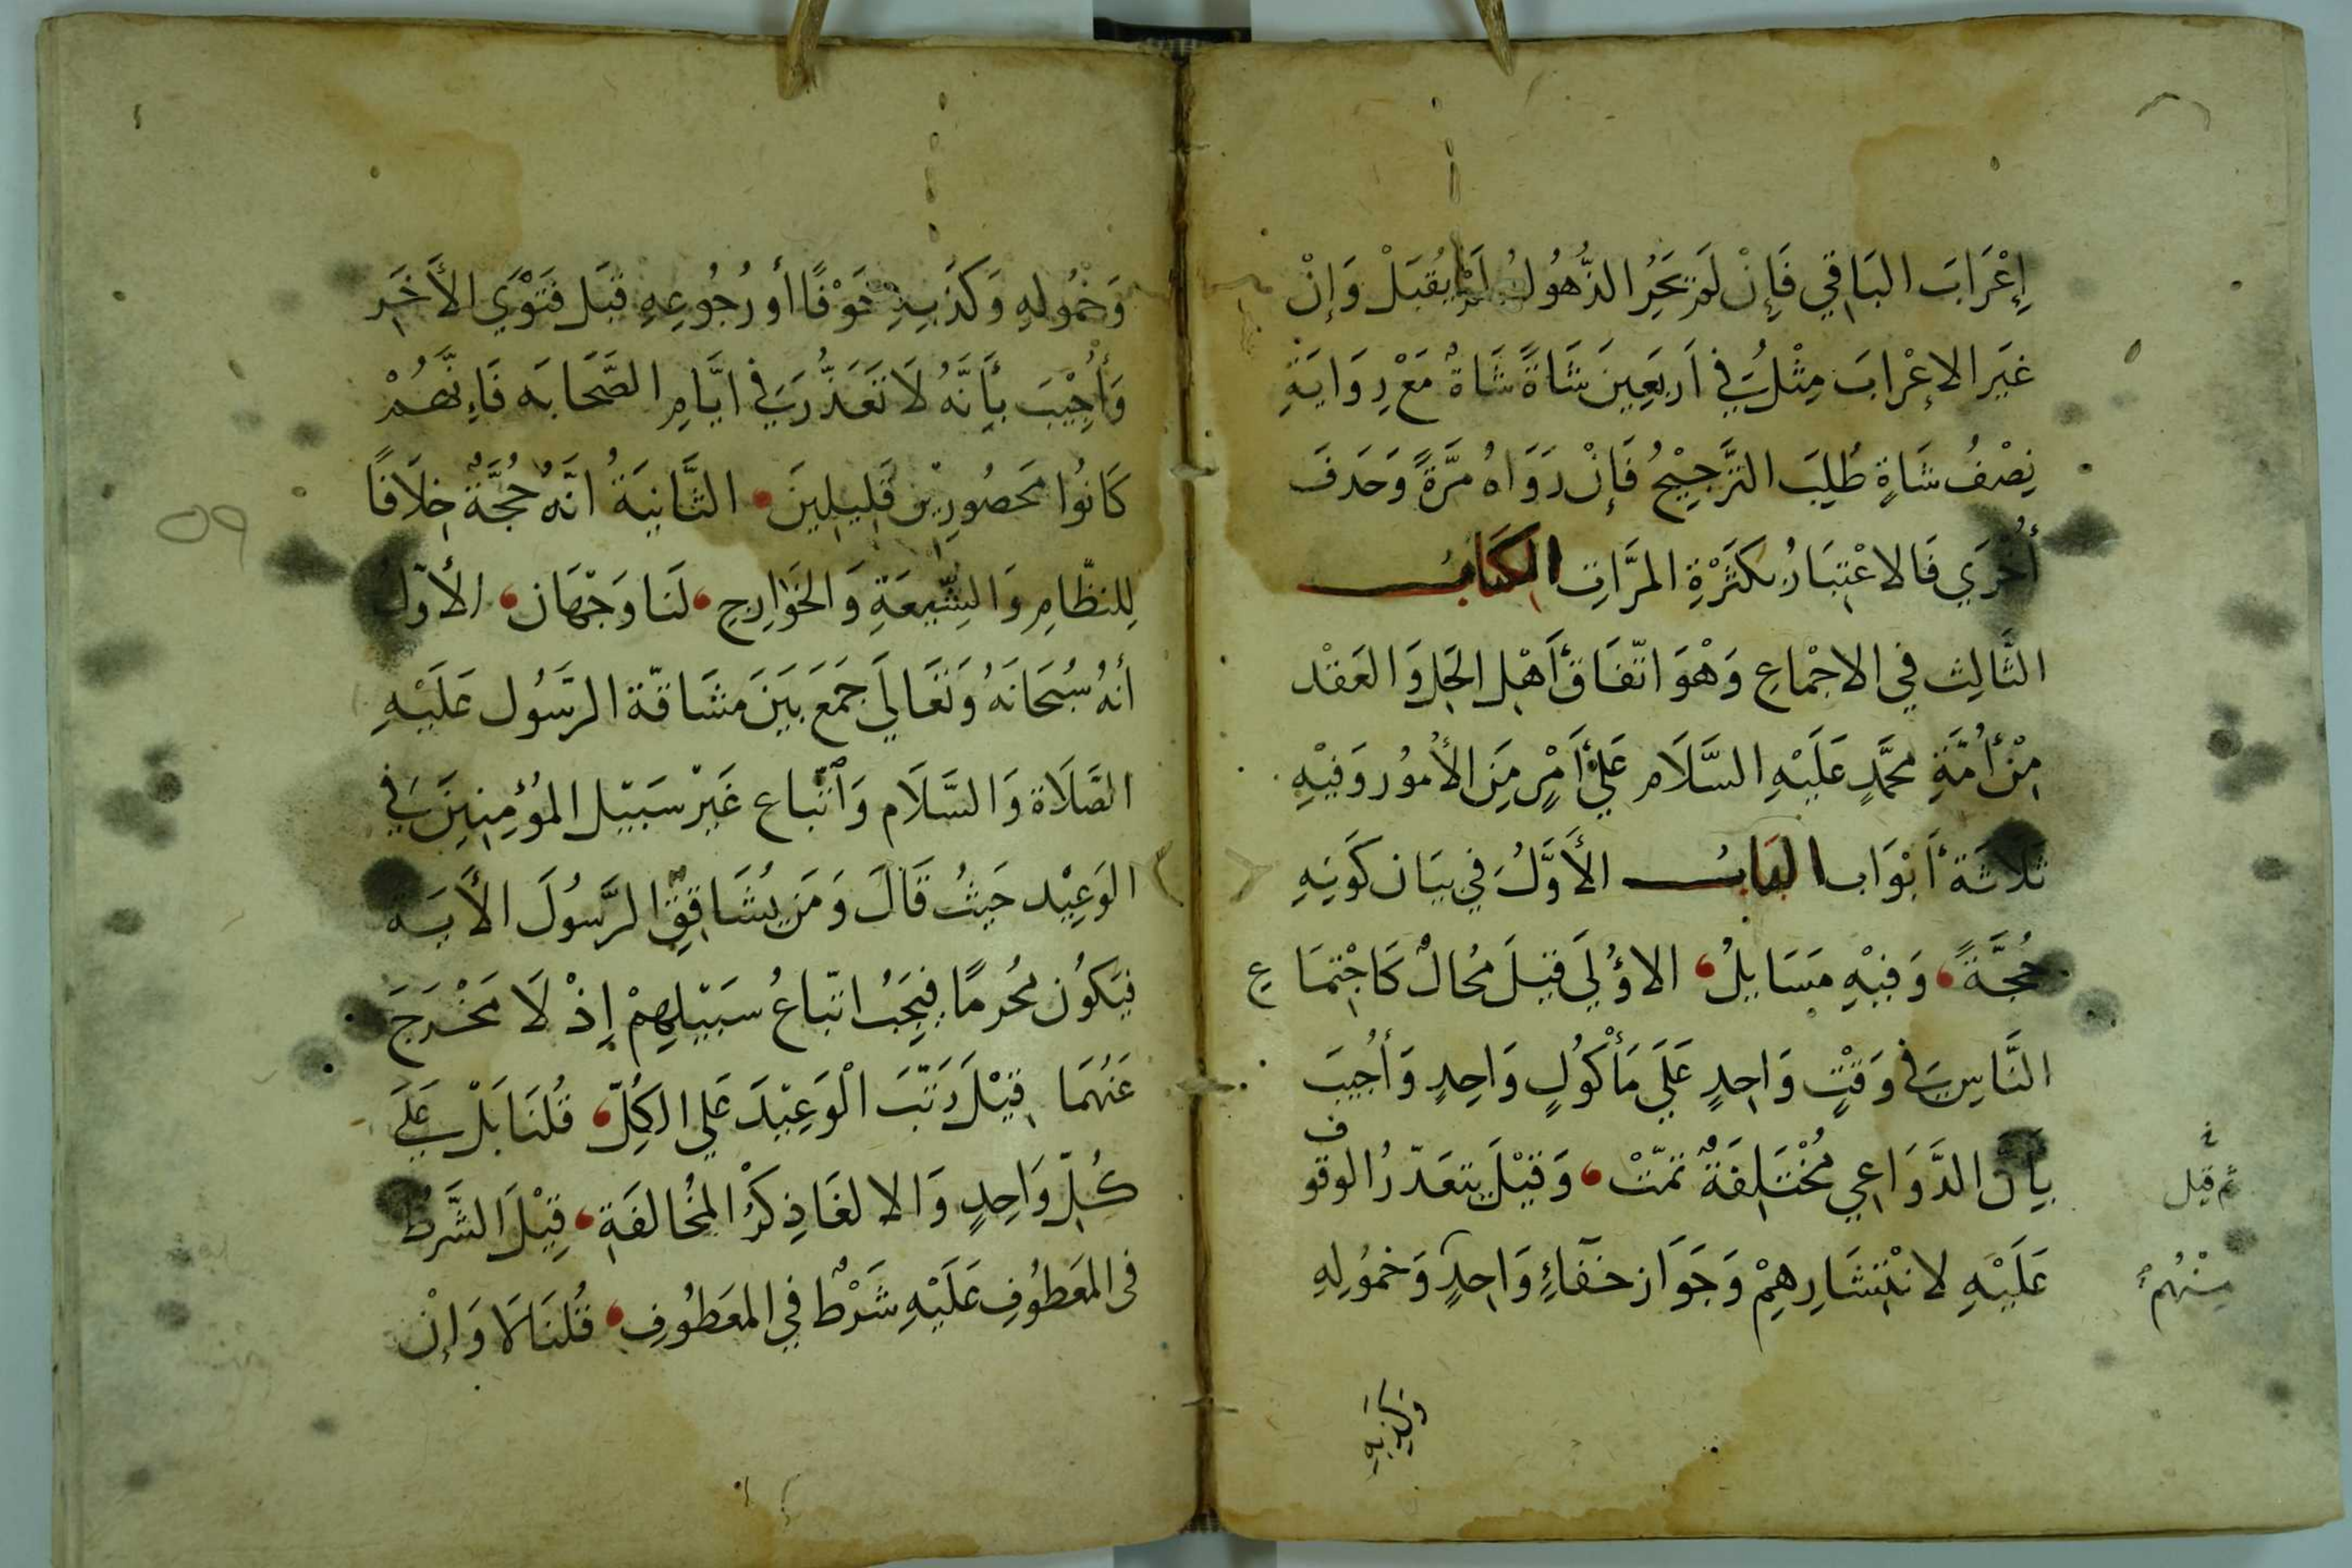 إِعْرَابَ البَاقِي فَإِنْ لَمْ يَجُرِ الذُّهُولُ لَمْ يُقْبَلْ وَإِنْ
غَيَر الإعْرابَ مِثْلُ فِي اَربَعِينَ شَاةً شَاةٌ مَعْ رِوَايَةِ
نِصْفُ شَاةٍ طُلِبَ التَّرْجِيْحُ فَإِنْ رَوَاهُ مرَّةً وَحَدفَ
أُخْرَي فَالاعْتِبَارُ بكَثَرْةِ المرَّاتِ الكتَابُ
الثَّالِث فِي الاجْماعِ وَهْوَ اتّفَاقُ أَهْلِ الحَلِ وَالعَقْد
مِنْ أُمَّةِ محَمَّدٍ عَلَيْهِ السَّلَام عَلَىْ أَمْرٍ مِنَ الأُمُور وَفِيْهِ
ثَلَاثَة أَبْوَاب البَابُ الأَوَّلُ فِي بيَان كَونِهِ
حُجَّةً وَفِيْهِ مَسَايلُ الاوُلَي قيلَ مُحَالٌ كَاجْتِمَاعِ
النَّاسِ فِي وَقْتٍ وَاحِدٍ عَلَي مَأْكُولٍ وَاحِدٍ وَأُجِيبَ
بِأَنَّ الدَّوَاعِي مُخْتَلِفَةٌ ثَمّتْ وَقيْلَ يتعَذّرُ الوقوف
عَلَيْهِ لانْتِشَارِهِمْ وَجَوَاز خَفَاءِ وَاحِدٍ وَخمُولِهِ
ثم قيل
مِنْهُمْ
وَكَذِبهِ
وَخمُولِهِ وَكَذبِهِ خَوْفًا أو رُجُوعِهِ قبَل فَتَوْي الأَخَر
وَأُجِيْبَ بأَنَّهُ لَا تَعَذُّرَ فِي ايَّامِ الصَّحَابَه فَإِنَّهُمْ
كَانُوا مَحصُورِيْنَ قَلِيلِينَ الثَّانيَةُ انَّهُ حُجَّةٌ خِلَافًا
لِلنظّامِ وَالشِّيعَةِ وَالخَوَارِجِ لَنَا وَجْهَان الأوّلُ
أنهُ سُبْحَانَهُ وَتَعَالَي جمَعَ بَيَنَ مشَاقّة الرّسُول عَلَيْهِ
الصَّلَاة وَالسَّلَام وَاتّباع غَيَرْ سَبيْل المؤُمِنِينَ فِي
الوَعِيْد حَيثُ قَالَ وَمَن يشَاقِقِ الرَّسُولَ الأَيَة
فيَكوُن مُحُرمًا فيَجَبُ اتّباعُ سَبيْلِهِمْ إِذْ لَا مَخْرَجَ
عَنْهُمَا قيْلَ رَتَّبَ الْوَعِيْدَ عَلي الكُلِّ قُلنَا بَلْ عَلَى
كُلِّ وَاحِدٍ وَالا لغَا ذِكَرُ المُخالفَةِ قِيْلَ الشَّرطُ
في المعَطوُفِ عَلَيْهِ شَرْطٌ فِي المعَطُوفِ قُلنَا لَا وَإِنْ
٥٩